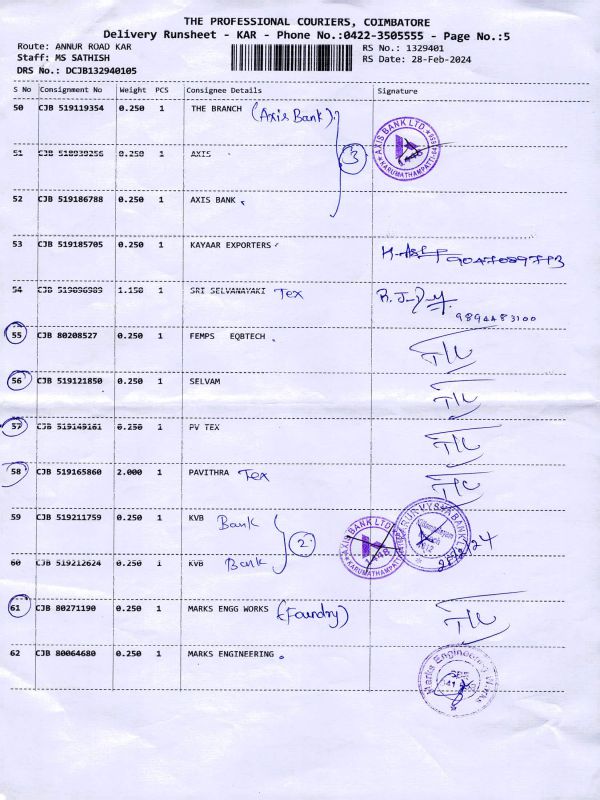 THE PROFESSIONAL COURIERS, COIMBATORE
Delivery Runsheet - KAR - Phone No.:0422-3505555 - Page No.:5
Route: ANNUR ROAD KAR RS No.: 1329401
Staff: MS SATHISH RS Date: 28-Feb-2024
DRS No.: DCJB132940105
S No Consignment No Weight PCS Consignee Details Signature
50 CJB 519119354 0.250 1 THE BRANCH (Axis Bank)
51 0.250 1 AXIS
3
AXIS BANK LTD
KARUMATHAMPATTI
52 CJB 519186788 0.250 1 AXIS BANK
53 CJB 519185705 0.250 1 KAYAAR EXPORTERS
54 1.150 1 SRI SELVANAYAKI Tex
9894483100
55 CJB 80208527 0.250 1 FEMPS EQBTECH
56 CJB 519121850 0.250 1 SELVAM
57 CJB 519149161 0.250 1 PV TEX
58 CJB 519165860 2.000 1 PAVITHRA Tex
59 CJB 519211759 0.250 1 KVB Bank
2
AXIS BANK LTD
KARUMATHAMPATTI
VYSYA BANK
60 CJB 519212624 0.250 1 KVB Bank
61 CJB 80271190 0.250 1 MARKS ENGG WORKS (Foundry)
62 CJB 80064680 0.250 1 MARKS ENGINEERING
Marks Engineering Works